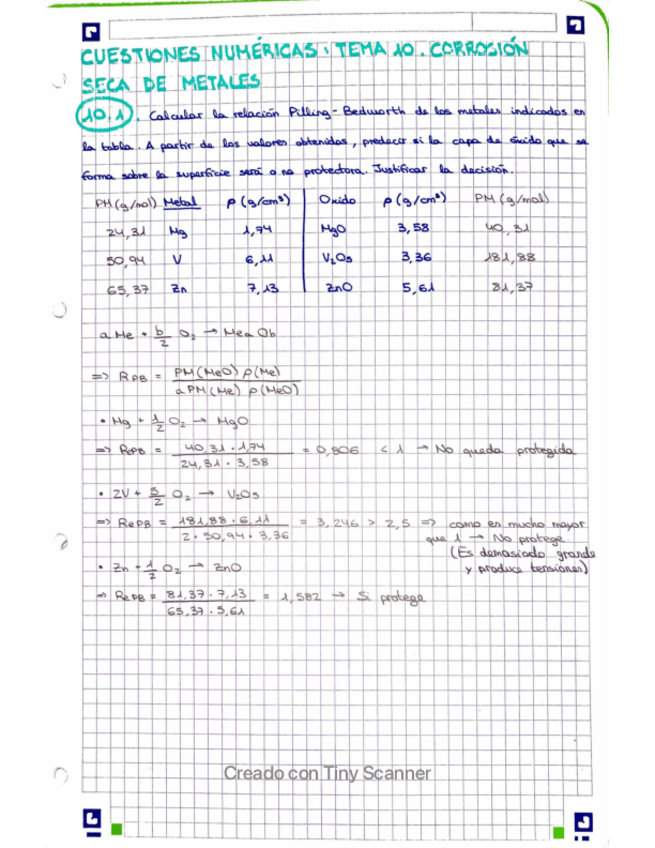 CUESTIONES NUMÉRICAS: TEMA 10. CORROSIÓN
SECA DE METALES
10.1. Calcular la relación Pilling-Bedworth de los metales indicados en
la tabla. A partir de los valores obtenidos, predecir si la capa de óxido que se
forma sobre la superficie será o no protectora. Justificar la decisión.
PM(g/mol) Metal ρ(g/cm³) Oxido ρ(g/cm³) PM(g/mol)
24,31 Mg 1,74 MgO 3,58 40,31
50,94 V 6,11 V₂O₅ 3,36 181,88
65,37 Zn 7,13 ZnO 5,61 81,37
a Me + b/2 O₂ → MeaOb
=> RPB = PM(MeO) ρ(Me) / a PM(Me) ρ(MeO)
• Mg + 1/2 O₂ → MgO
=> RePB = 40,31 · 1,74 / 24,31 · 3,58 = 0,806 < 1 → No queda protegida
• 2V + 5/2 O₂ → V₂O₅
=> RePB = 181,88 · 6,11 / 2 · 50,94 · 3,36 = 3,246 > 2,5 => como es mucho mayor
que 1 → No protege
(Es demasiado grande
y produce tensiones)
• Zn + 1/2 O₂ → ZnO
=> RePB = 81,37 · 7,13 / 65,37 · 5,61 = 1,582 → Si protege
Creado con Tiny Scanner